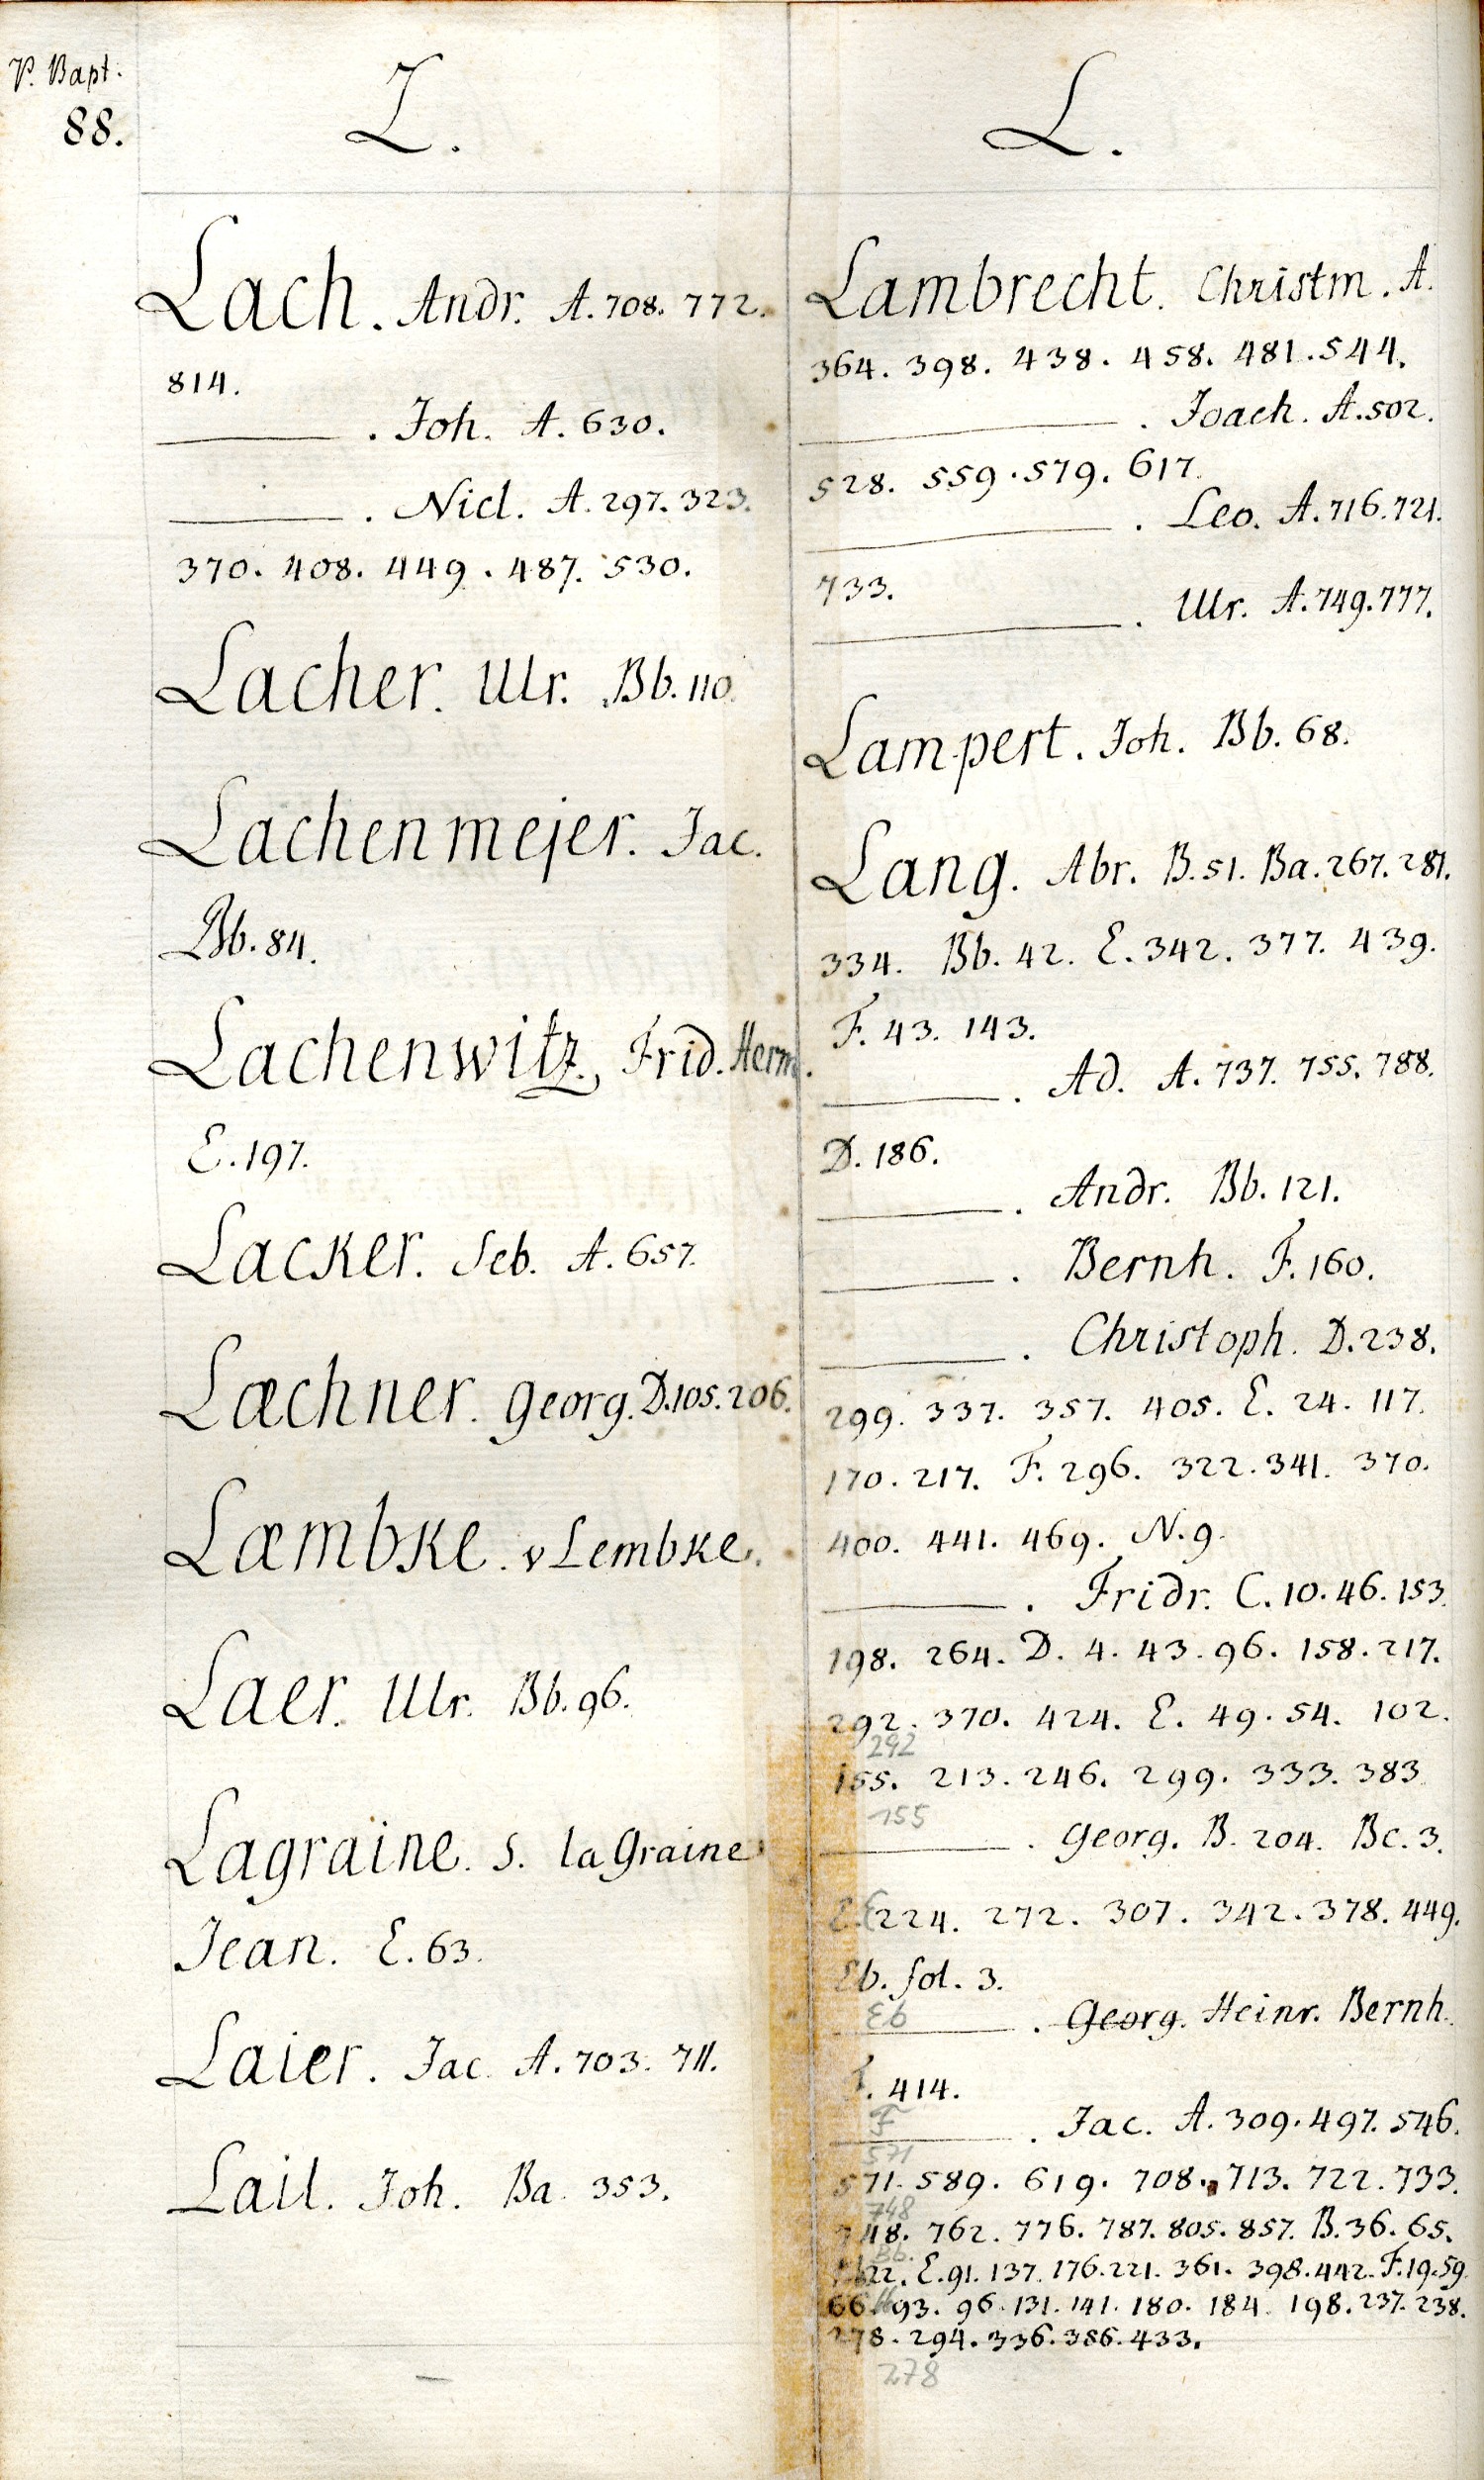 P. Bapt.
88.
L.
Lach. Andr. A. 708. 772.
814.
———. Joh. A. 630.
———. Nicl. A. 297. 323.
370. 408. 449. 487. 530.
Lacher. Ulr. Bb. 110.
Lachenmejer. Jac.
Bb. 84.
Lachenwitz, Frid. Herm.
E. 197.
Lacker. Seb. A. 657.
Læchner. Georg. D. 105. 206.
Læmbke. v Lembke.
Laer. Ulr. Bb. 96.
Lagraine. S. la Graine
Jean. E. 63.
Laier. Jac. A. 703. 711.
Lail. Joh. Ba. 353.
L.
Lambrecht. Christm. A.
364. 398. 438. 458. 481. 544.
———. Joach. A. 502.
528. 559. 579. 617.
———. Leo. A. 716. 721.
733.
———. Ulr. A. 749. 777.
Lampert. Joh. Bb. 68.
Lang. Abr. B. 51. Ba. 267. 281.
334. Bb. 42. E. 342. 377. 439.
F. 43. 143.
———. Ad. A. 737. 755. 788.
D. 186.
———. Andr. Bb. 121.
———. Bernh. F. 160.
———. Christoph. D. 238.
299. 337. 357. 405. E. 24. 117.
170. 217. F. 296. 322. 341. 370.
400. 441. 469. N. 9.
———. Fridr. C. 10. 46. 153.
198. 264. D. 4. 43. 96. 158. 217.
292. 370. 424. E. 49. 54. 102.
292
155. 213. 246. 299. 333. 383
155
———. Georg. B. 204. Bc. 3.
E. 224. 272. 307. 342. 378. 449.
Eb. fol. 3.
Eb
———. Georg. Heinr. Bernh.
F. 414.
F
———. Jac. A. 309. 497. 546.
571
571. 589. 619. 708. 713. 722. 733.
748
748. 762. 776. 787. 805. 857. B. 36. 65.
Bb.
22. E. 91. 137. 176. 221. 361. 398. 442. F. 19. 59.
66. 93. 96. 131. 141. 180. 184. 198. 237. 238.
278. 294. 336. 386. 433.
278